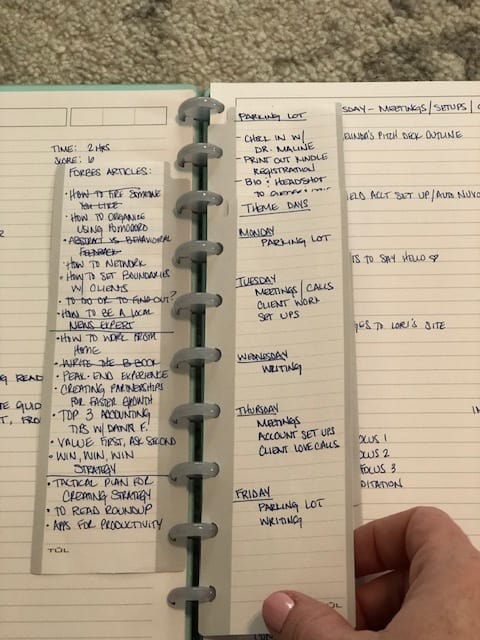 TIME: 2 HRS
SCORE: 6
FORBES ARTICLES:
• HOW TO FIRE SOMEONE
YOU LIKE
• HOW TO ORGANIZE
USING POMODORO
• ABSTRACT VS BEHAVIORAL
FEEDBACK
• HOW TO NETWORK
• HOW TO SET BOUNDARIES
W/ CLIENTS
• TO DO OR TO FIND OUT?
• HOW TO BE A LOCAL
NEWS EXPERT
• HOW TO WORK FROM
HOME
• WRITE THE B BOOK
• PEAK-END EXPERIENCE
• CREATING PARTNERSHIPS
FOR FASTER GROWTH
• TOP 3 ACCOUNTING
TIPS W/ DAWN F.
• VALUE FIRST, ASK SECOND
• WIN, WIN, WIN
STRATEGY
• TACTICAL PLAN FOR
CREATING STRATEGY
• TO READ ROUNDUP
• APPS FOR PRODUCTIVITY
TUL
READ
PARKING LOT
- CHECK IN W/
DR. MALINE
- PRINT OUT KINDLE
REGISTRATION
- BIO + HEADSHOT
TO
THEME DAYS
MONDAY
PARKING LOT
TUESDAY
MEETINGS / CALLS
CLIENT WORK
SET UPS
WEDNESDAY
WRITING
THURSDAY
MEETINGS
ACCOUNT SET UPS
CLIENT LOVE CALLS
FRIDAY
PARKING LOT
WRITING
SDAY - MEETINGS / SETUPS /
PITCH DECK OUTLINE
ACCT SET UP /
TO SAY HELLO
TO LORI'S SITE
OCUS 1
OCUS 2
FOCUS 3
DITATION